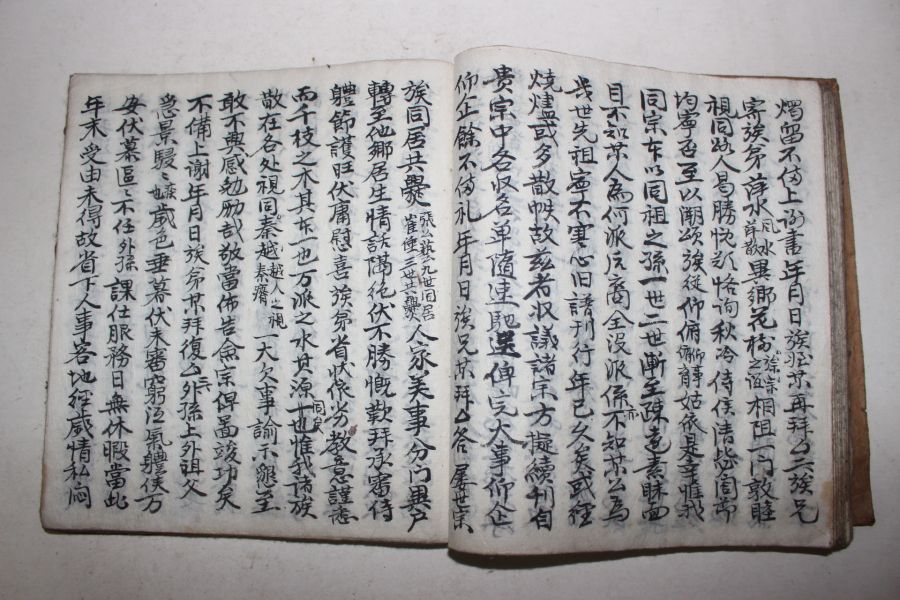 燭留不備上謝書年月日族姪某再拜 亼族兄
寄族弟 萍水 異鄉花樹 相阻一門敦睦
視同路人曷勝悅歎恪詢秋冷侍候清毖
均寧 至以溯頌族從仰俯 姑依是幸惟我
同宗本以同祖之孫一世二世漸至疎遠素昧面
目不知某人為何派后裔全沒派係不知某公為
幾世先祖寧不寒心旧譜刊行年已久矣或經
燒燼或多散帙故玆者收議諸宗方擬續刊自
貴宗中各收名單隨速馳 俾完大事仰企
仰企餘不備礼 年月日族兄某拜 亼答 屢世業
族同居共爨 張公藝九世同居 崔倕三世共爨 人家美事分門異戶
轉至他鄉居生情誼隔絕伏不勝慨歎拜承審侍
體節護旺伏庸慰喜族弟省狀依劣教意謹悉
而千枝之木其本一也万派之水其源 也惟我諸族
散在各處視同秦越 越人之視秦瘠 一大欠事諭示懇至
敢不興感勉勵哉敬當佈告僉宗俾啚竣功矣
不備上謝年月日族弟某拜復 亼外孫上外祖父
急景駸〻 歲色垂暮伏未審窮沍氣體候万
安伏慕區〻不任外孫課仕服務日無休暇當此
年末受由未得故省下人事客地經歲情私悶